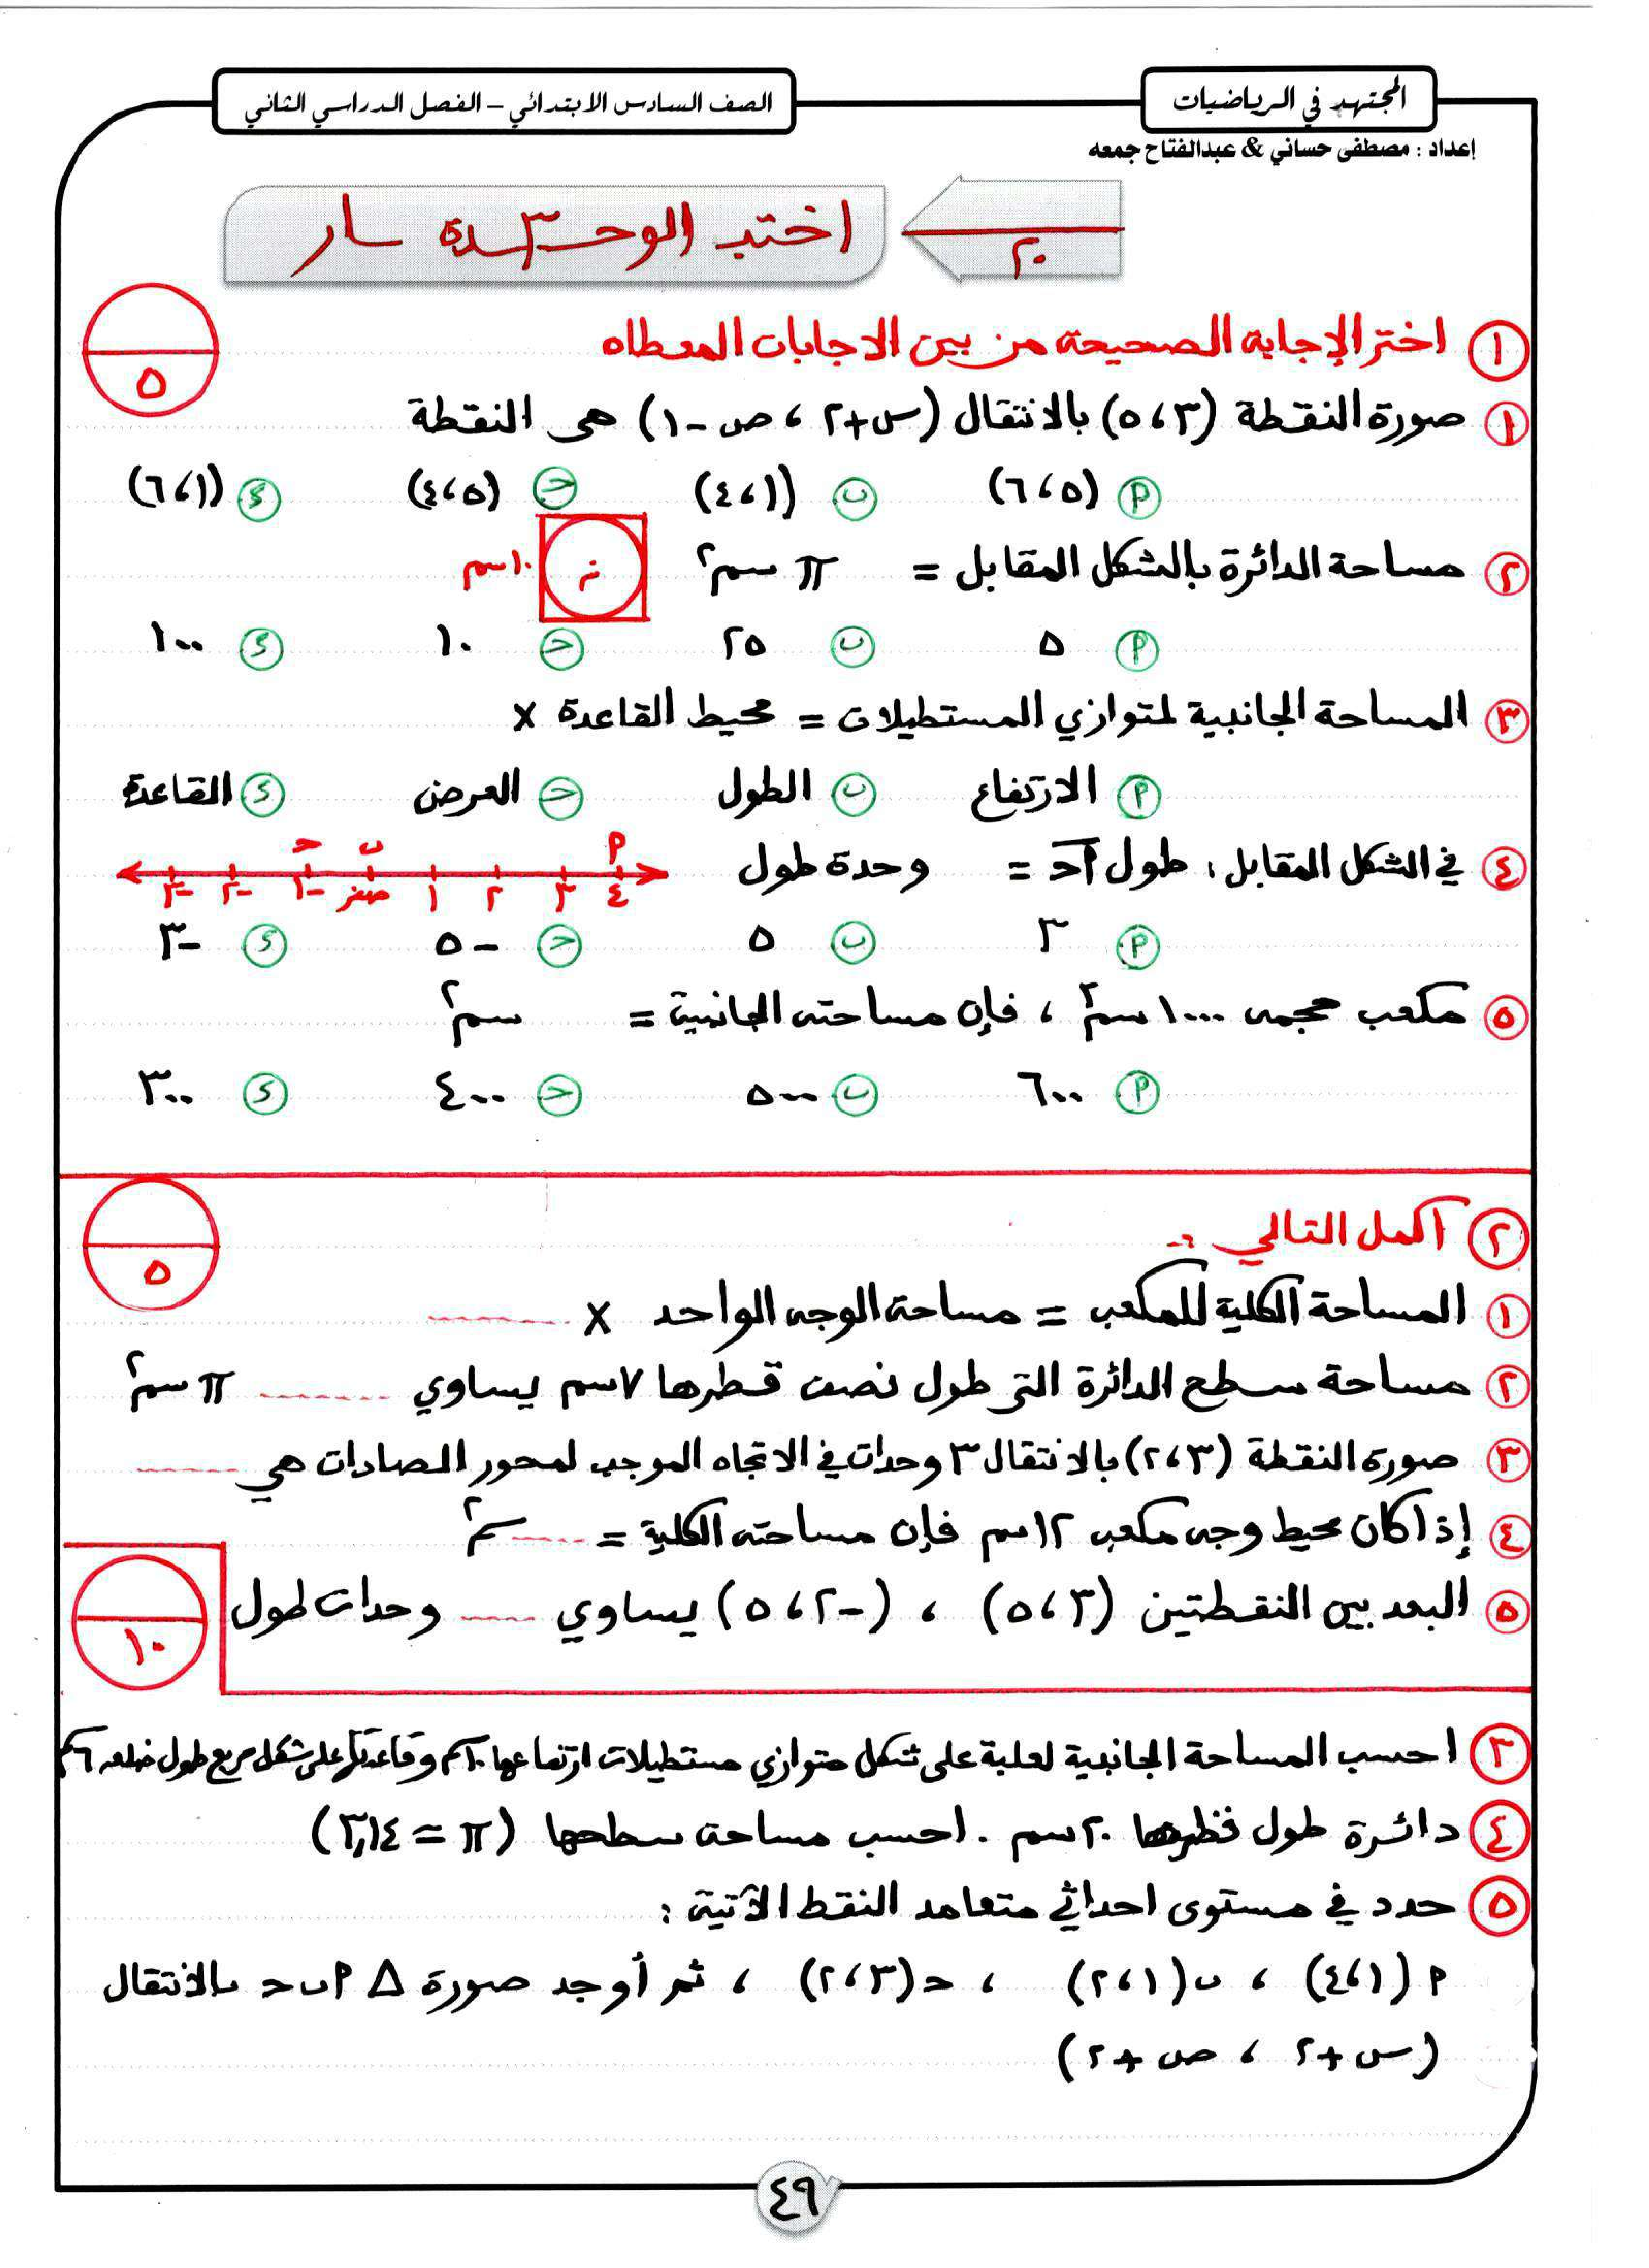 المجتهد في الرياضيات
الصف السادس الابتدائي – الفصل الدراسي الثاني
إعداد : مصطفى حساني & عبدالفتاح جمعه
٢٠
اختبار الوحدة ٣
١ اختر الإجابة الصحيحة من بين الاجابات المعطاه
٥
١ صورة النقطة (٣ ، ٥) بالانتقال (س+٢ ، ص-١) هى النقطة
أ (٥ ، ٦) ب (١ ، ٤) ح (٥ ، ٤) د (١ ، ٦)
٢ مساحة الدائرة بالشكل المقابل = π سم٢
م ١٠سم
أ ٥ ب ٢٥ ح ١٠ د ١٠٠
٣ المساحة الجانبية لمتوازي المستطيلات = محيط القاعدة ×
أ الارتفاع ب الطول ح العرض د القاعدة
٤ في الشكل المقابل : طول أح = وحدة طول
ح ب أ
-٣ -٢ -١ صفر ١ ٢ ٣ ٤
أ ٣ ب ٥ ح -٥ د -٣
٥ مكعب حجمه ١٠٠٠سم٣ ، فإن مساحته الجانبية = سم٢
أ ٦٠٠ ب ٥٠٠ ح ٤٠٠ د ٣٠٠
٢ أكمل التالي :-
٥
١ المساحة الكلية للمكعب = مساحة الوجه الواحد × ........
٢ مساحة سطح الدائرة التى طول نصف قطرها ٧سم يساوي ........ π سم٢
٣ صورة النقطة (٣ ، ٢) بالانتقال ٣ وحدات في الاتجاه الموجب لمحور الصادات هي ........
٤ إذا كان محيط وجه مكعب ١٢سم فإن مساحته الكلية = ........ سم٢
٥ البعد بين النقطتين (٣ ، ٥) ، (-٢ ، ٥) يساوي ........ وحدات طول
١٠
٣ احسب المساحة الجانبية لعلبة على شكل متوازي مستطيلات ارتفاعها ١٠سم وقاعدتها على شكل مربع طول ضلعه ٦سم
٤ دائرة طول قطرها ٢٠سم . احسب مساحة سطحها (π = ٣,١٤)
٥ حدد في مستوى احداثي متعامد النقط الآتية :
أ (١ ، ٤) ، ب (١ ، ٢) ، ح (٣ ، ٢) ، ثم أوجد صورة Δ أ ب ح بالانتقال
(س+٢ ، ص+٢)
٤٩